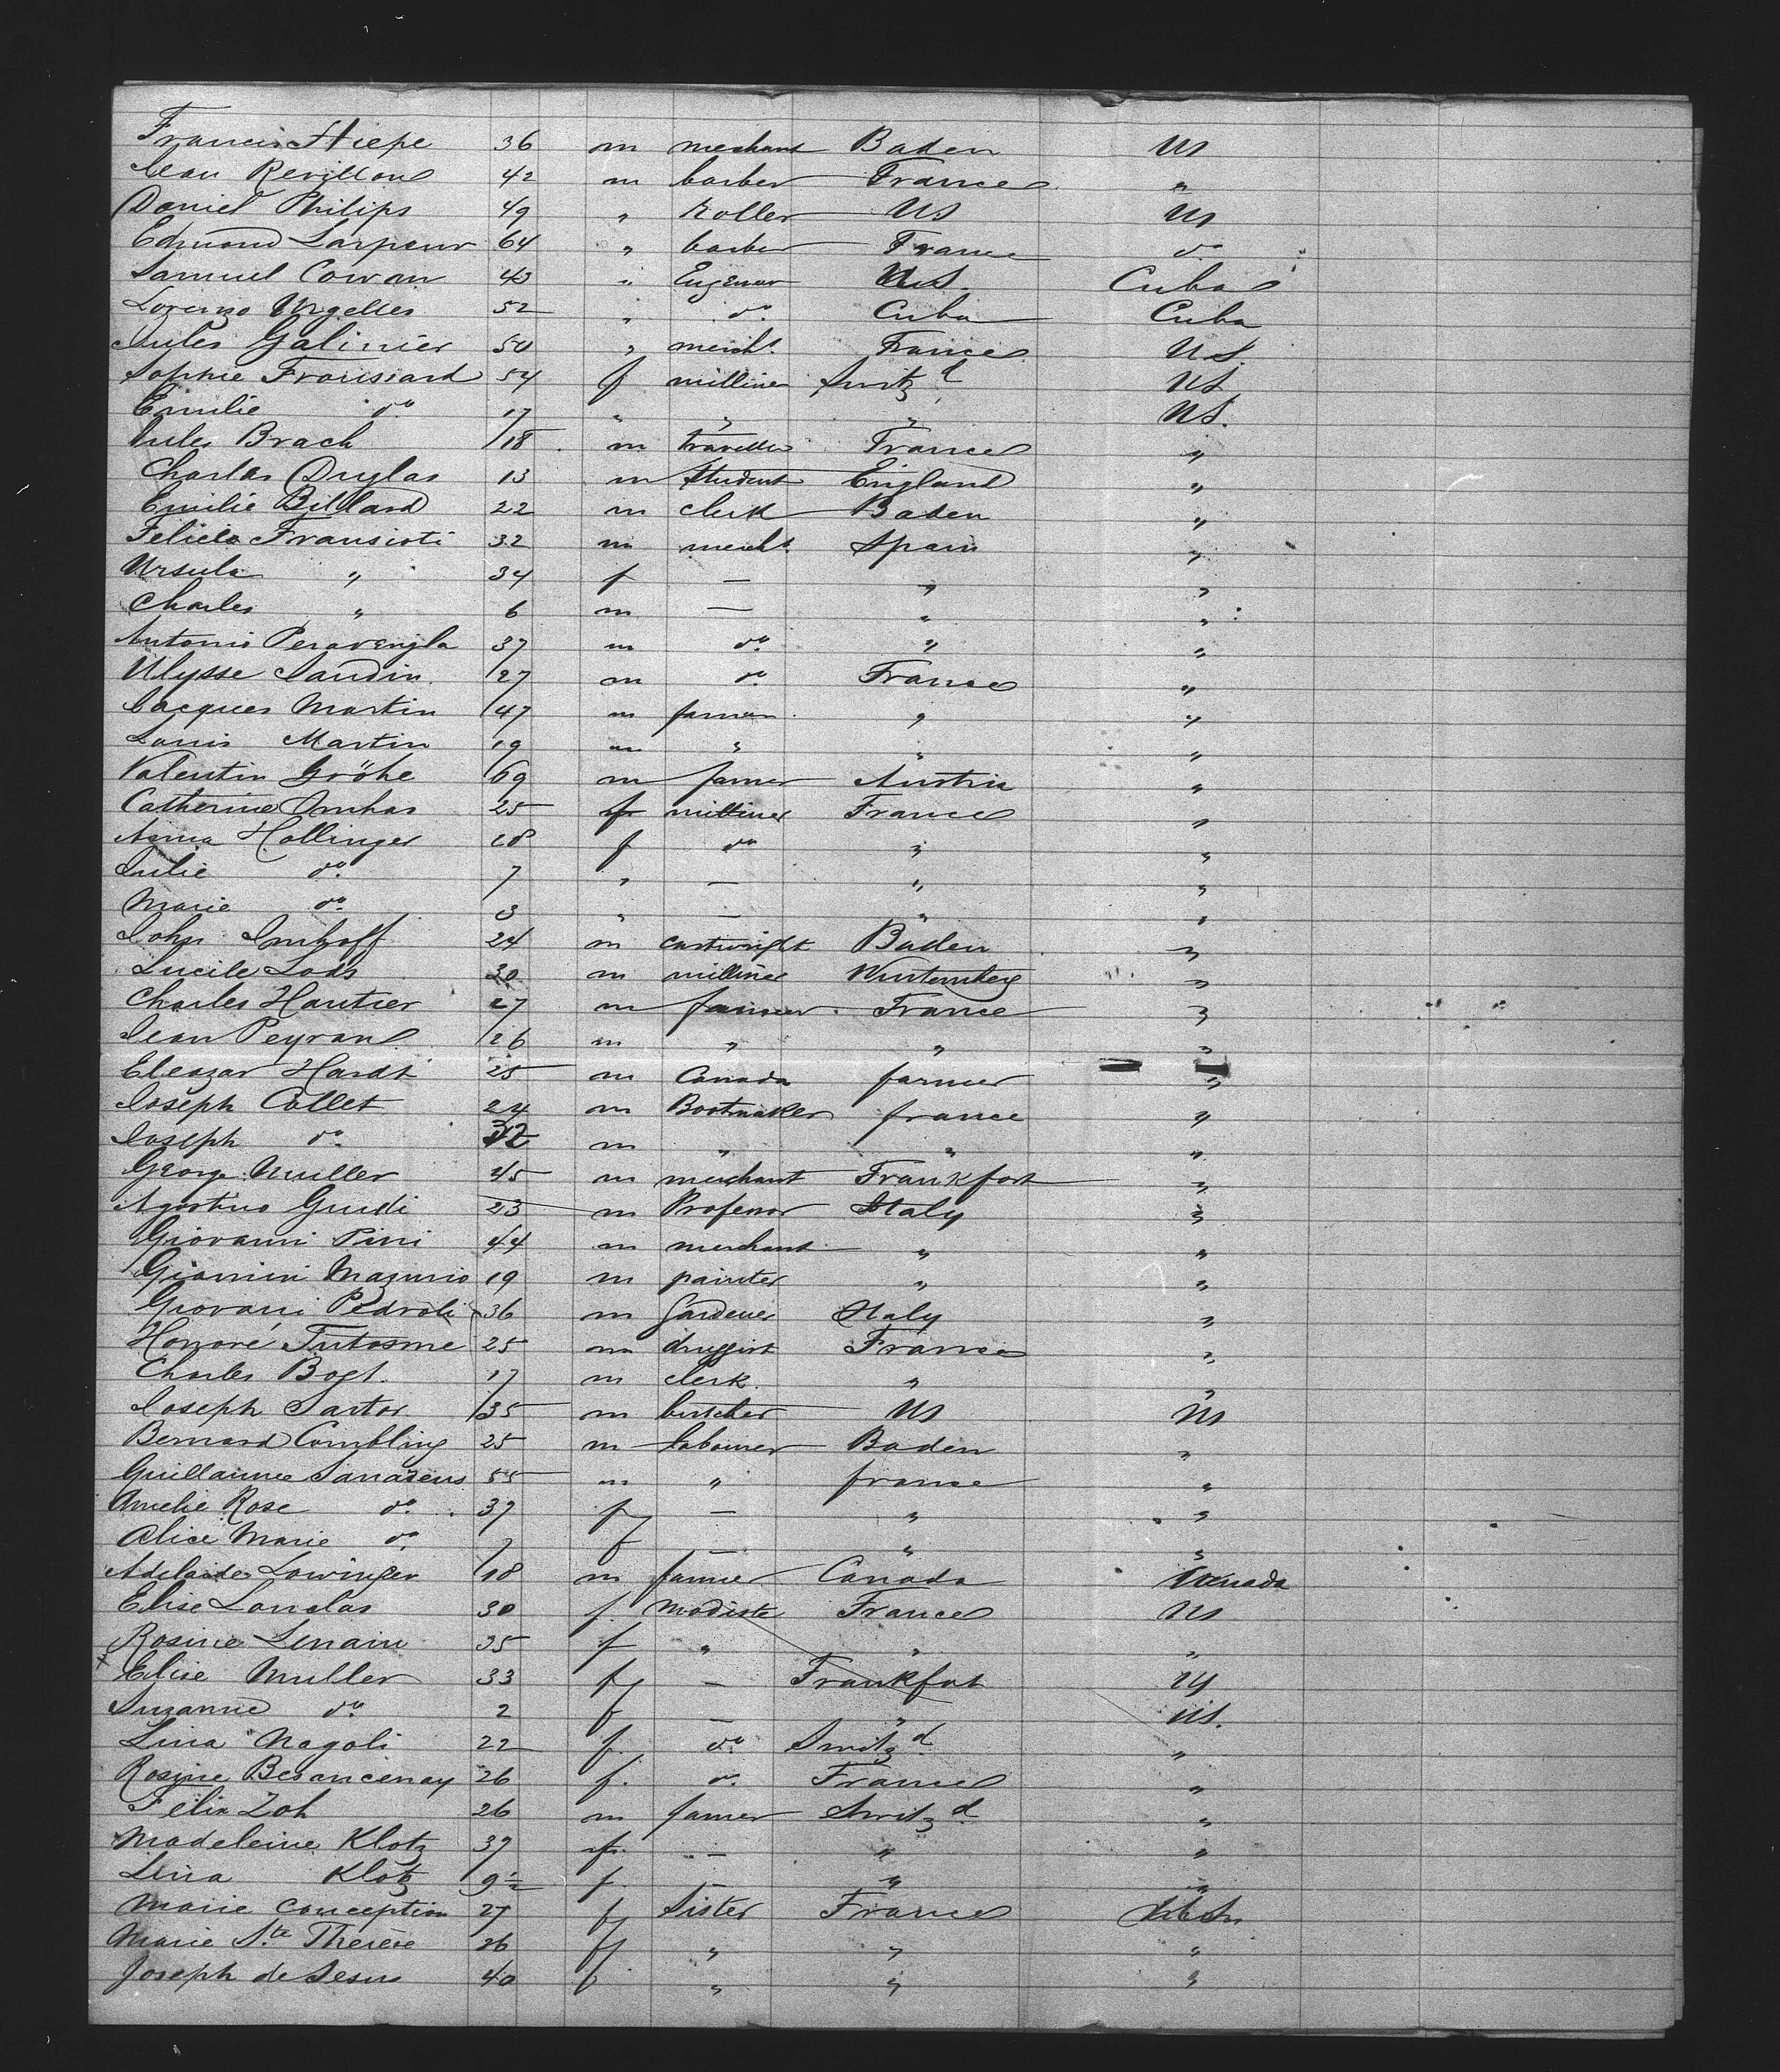 Francis Hiepe 36 m merchant Baden US
Jean Revillond 42 m barber France "
Daniel Philips 49 " Roller US US
Edmond Larpeur 64 " barber France do
Samuel Cowan 43 " Engineer U.S. Cuba
Lorenzo Urgelles 52 " do. Cuba Cuba
Jules Galinier 50 " mercht. France U.S.
Sophie Froussard 54 f milliner Switzd US
Emilie do 17 " " " US.
Jules Brach 18 m traveller France "
Charles Duglas 13 m Student England "
Emilie Billard 22 m clerk Baden "
Felicie Fransioti 32 m mercht. Spain "
Ursula " 34 f — " "
Charles " 6 m — " "
Antonio 37 m do. " "
Ulysse Jaudin 27 m do. France "
Jacques Martin 47 m farmer " "
Louis Martin 19 m " " "
Valentin Gröhe 69 m farmer Austria "
Catherine Omhas 25 f milliner France "
Anna Hollinger 18 f do " "
Julie do. 7 " — " "
Marie do. 3 " — " "
John Imhoff 24 m cartwright Baden "
Lucile Lods 30 m milliner Wurtemberg "
Charles Hautier 27 m farmer France "
Jean Peyran 26 m " " "
Eleazar Hardt 25 m Canada farmer "
Joseph Collet 24 m Bootmaker france "
Joseph do. 32 m " " "
George Muller 45 m merchant Frankfort "
Agostino Guidi 23 m Professor Italy "
Giovanni Pini 44 m merchant " "
Giannini Mazurio 19 m painter " "
Giovani Pedroli 36 m Gardener Italy "
Honoré Tutosme 25 m druggist France "
Charles Bogt. 17 m clerk " "
Joseph Sartor 35 m butcher US US
Bernard Combling 25 m labourer Baden "
Guillaume Sanazeus 55 m " france "
Amelie Rose do. 37 f — " "
Alice Marie do. 7 f — " "
Adelaide Lowinger 18 m farmer Canada Canada
Elise Landas 30 f. modiste France US
Rosine Lenain 35 f " " "
x Elise Muller 33 f — Frankfort US
Suzanne do 2 f — " US.
Lina Nagoli 22 f. do. Switzd. "
Rosine Besancenay 26 f. do. France "
Felix Zoh 26 m farmer Switzd. "
Madeleine Klotz 37 f. — " "
Lina Klotz 9½ f. — " "
Marie Conception 27 f Sister France
Marie Ste Therèse 26 f " " "
Joseph de Jesus 40 f " " "